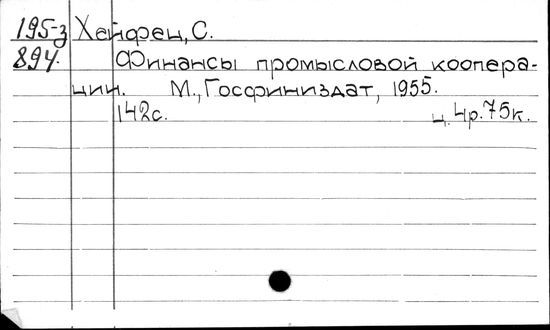 195-з Хейфец, С.
894. Финансы промысловой коопера-
ции. М., Госфиниздат, 1955.
142с. ц. 4р.75к.